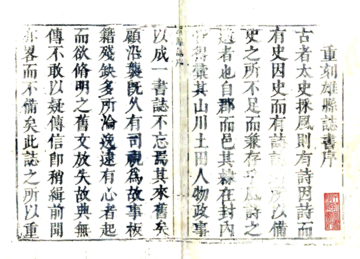 重刻雄縣誌書序
古者太史採風則有詩因詩而
有史因史而有詩以備
史之所不足而兼存詩之
者也自郡而邑其隸在封內
得彙其山川土田人物政事
以成一書誌不忘厥其來舊矣
顧沿襲既久有司視為故事板
籍殘缺多所淪逸遠有心者起
而欲脩明之舊文放失故典無
傳不敢以疑傳信即稍緝前聞
亦畧而不備矣此誌之所以重